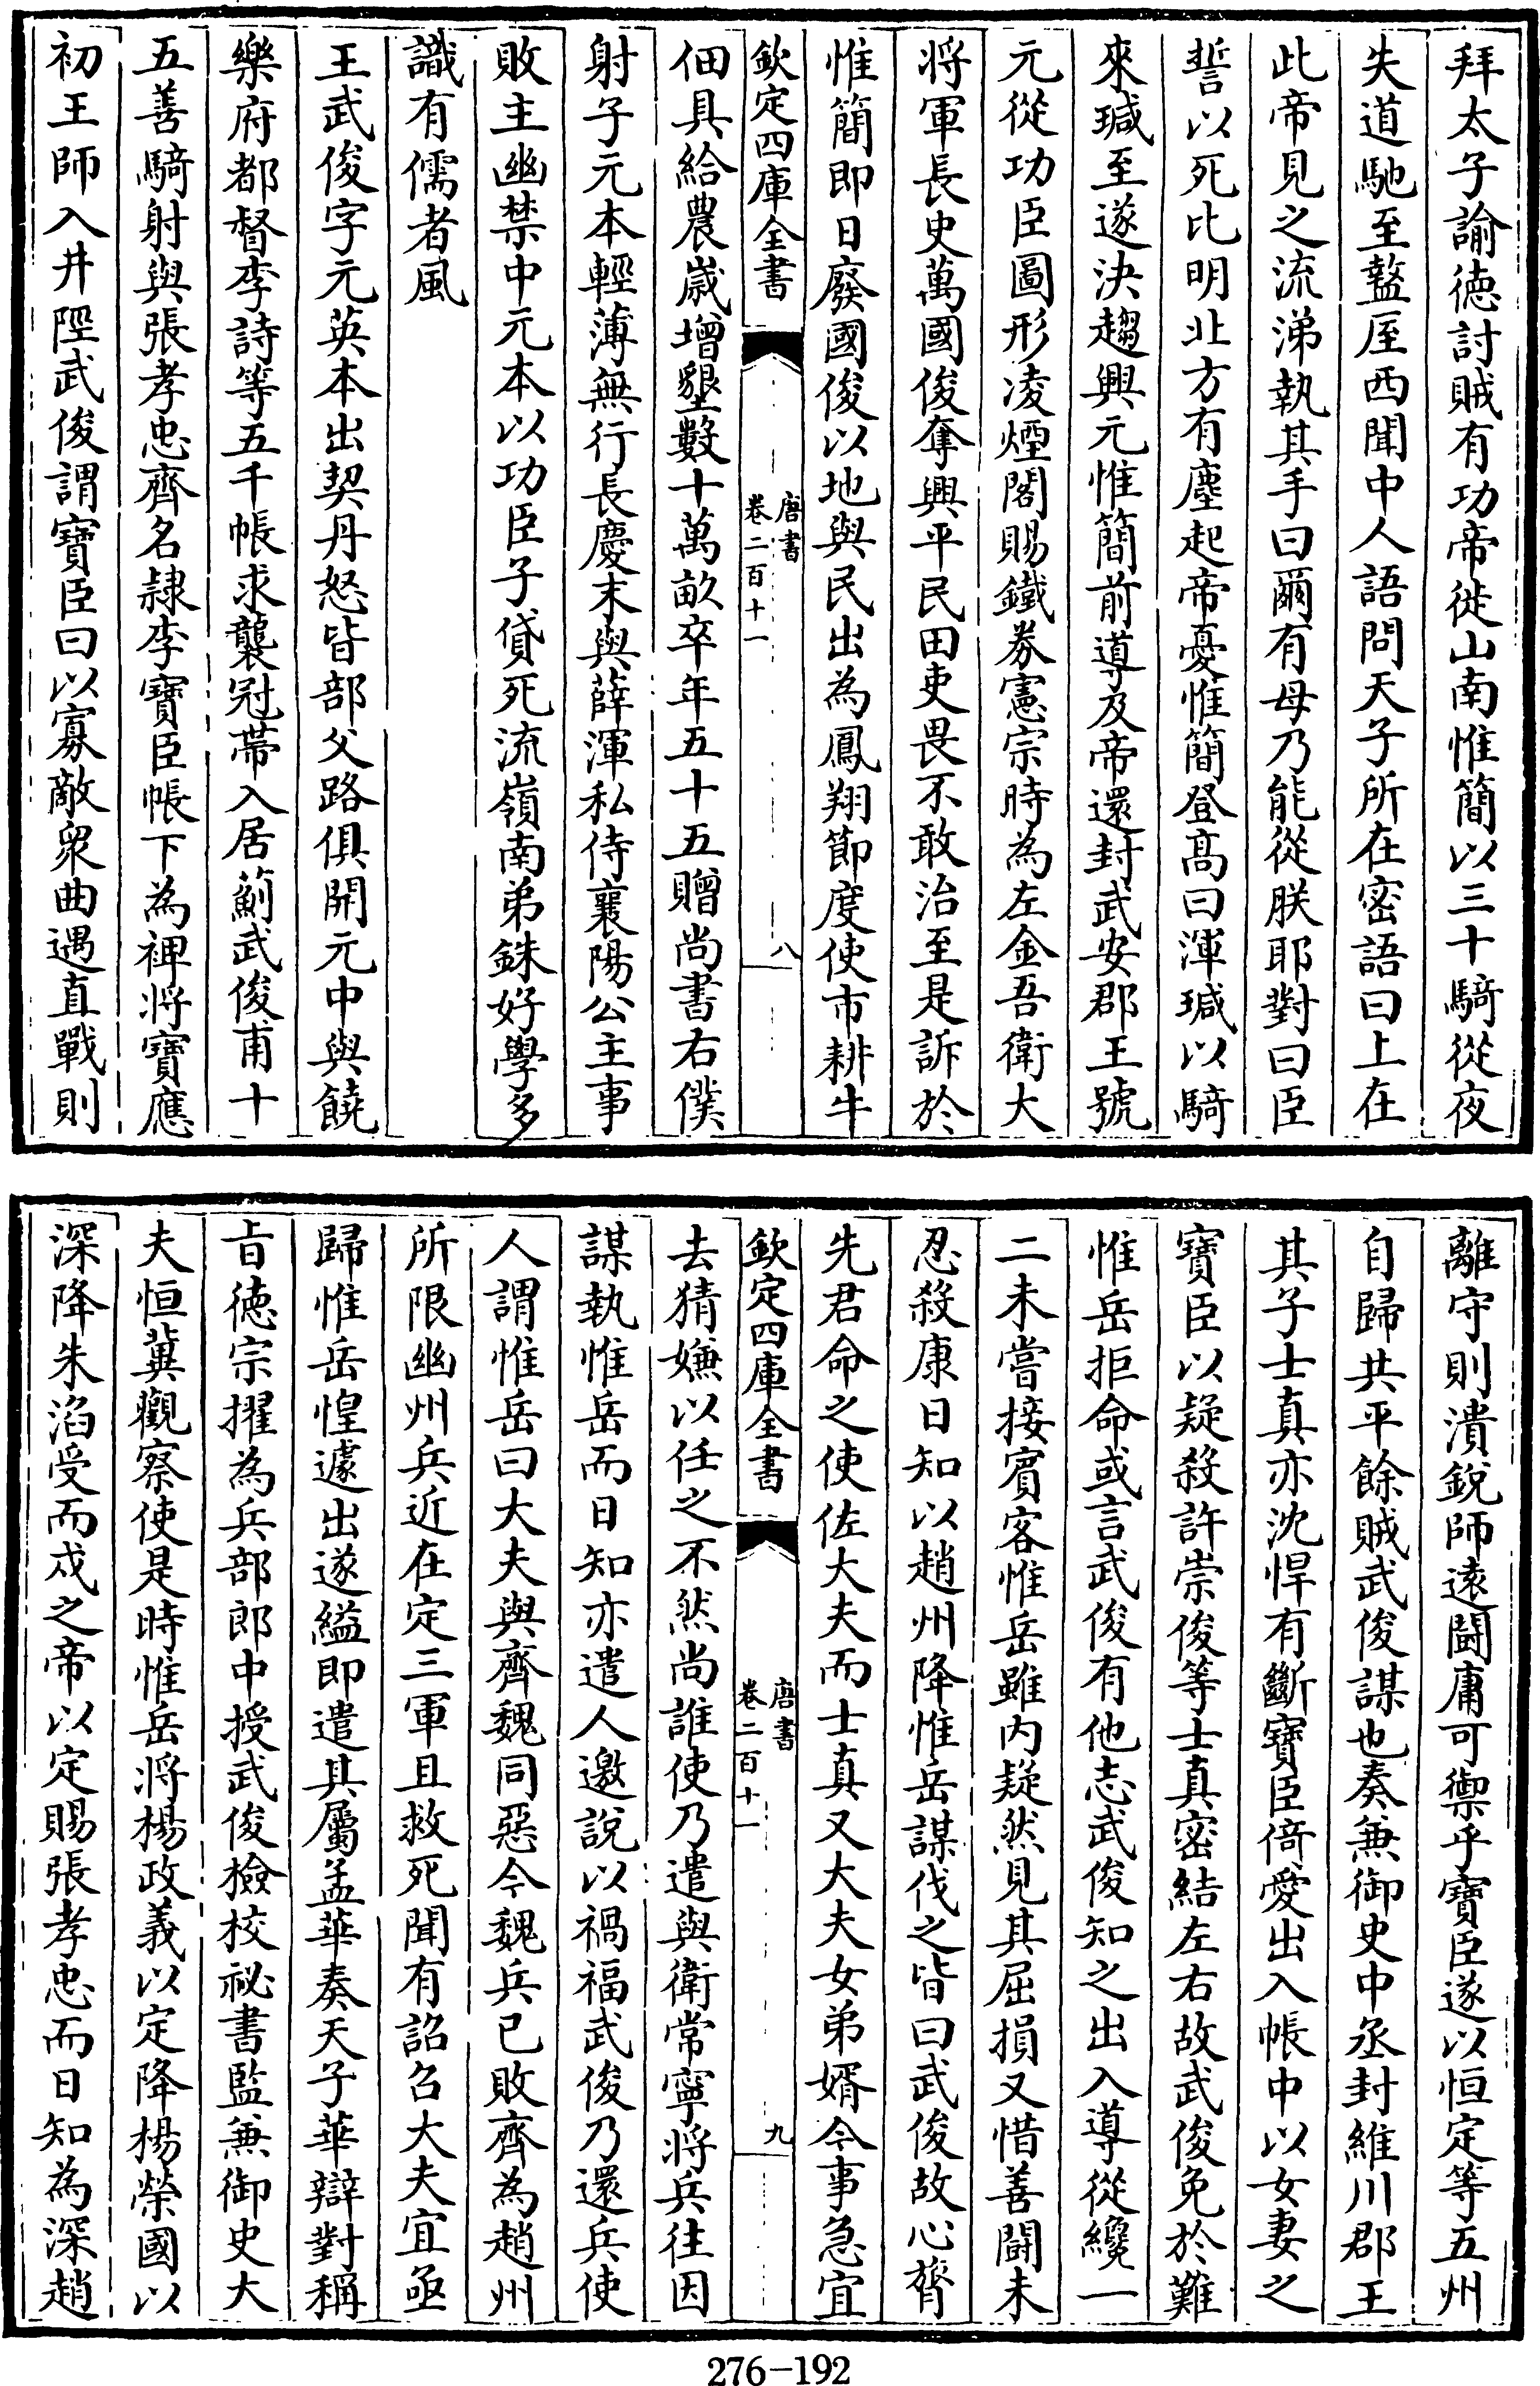 拜太子諭徳討賊有功帝徙山南惟簡以三十騎從夜
失道馳至盩厔西聞中人語問天子所在密語曰上在
此帝見之流涕執其手曰爾有母乃能從朕耶對曰臣
誓以死比明北方有塵起帝憂惟簡登髙曰渾瑊以騎
來瑊至遂決趨興元惟簡前導及帝還封武安郡王號
元從功臣圖形凌煙閣賜鐵券憲宗時為左金吾衛大
將軍長史萬國俊奪興平民田吏畏不敢治至是訴於
惟簡即日廢國俊以地與民出為鳳翔節度使市耕牛
欽定四庫全書
唐書
卷二百十一
八
佃具給農歳增墾數十萬畝卒年五十五贈尚書右僕
射子元本輕薄無行長慶末與薛渾私侍襄陽公主事
敗主幽禁中元本以功臣子貸死流嶺南弟銖好學多
識有儒者風
王武俊字元英本出契丹怒皆部父路俱開元中與饒
樂府都督李詩等五千帳求襲冠帶入居薊武俊甫十
五善騎射與張孝忠齊名隷李寶臣帳下為裨將寶應
初王師入井陘武俊謂寶臣曰以寡敵衆曲遇直戰則
離守則潰銳師逺鬭庸可禦乎寶臣遂以恒定等五州
自歸共平餘賊武俊謀也奏兼御史中丞封維川郡王
其子士真亦沈悍有斷寶臣倚愛出入帳中以女妻之
寶臣以疑殺許崇俊等士真密結左右故武俊免於難
惟岳拒命或言武俊有他志武俊知之出入導從纔一
二未嘗接賓客惟岳雖内疑然見其屈損又惜善鬭未
忍殺康日知以趙州降惟岳謀伐之皆曰武俊故心膂
先君命之使佐大夫而士真又大夫女弟婿今事急宜
欽定四庫全書
唐書
卷二百十一
九
去猜嫌以任之不然尚誰使乃遣與衛常寧將兵往因
謀執惟岳而日知亦遣人邀說以禍福武俊乃還兵使
人謂惟岳曰大夫與齊魏同惡今魏兵已敗齊為趙州
所限幽州兵近在定三軍且救死聞有詔召大夫宜亟
歸惟岳惶遽出遂縊即遣其屬孟華奏天子華辯對稱
㫖徳宗擢為兵部郎中授武俊檢校祕書監兼御史大
夫恒冀觀察使是時惟岳將楊政義以定降楊榮國以
深降朱滔受而戍之帝以定賜張孝忠而日知為深趙
276-192